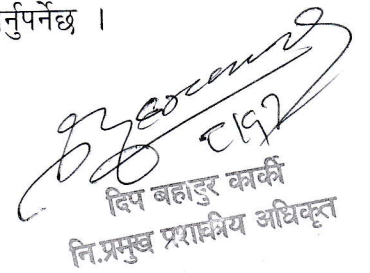 र्नुपर्नेछ ।
दिप बहादुर कार्की
नि.प्रमुख प्रशाकीय अधिकृत